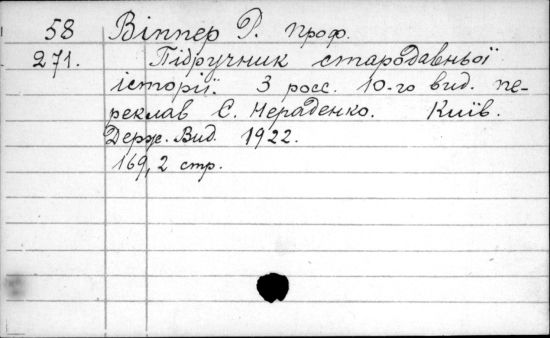 58 Віппер Р. проф.
271. Підручник стародавньої
історії. 3 росс. 10-го вид. пе-
реклав Є. Нераденко. Київ.
Держ. Вид. 1922.
169, 2 стр.